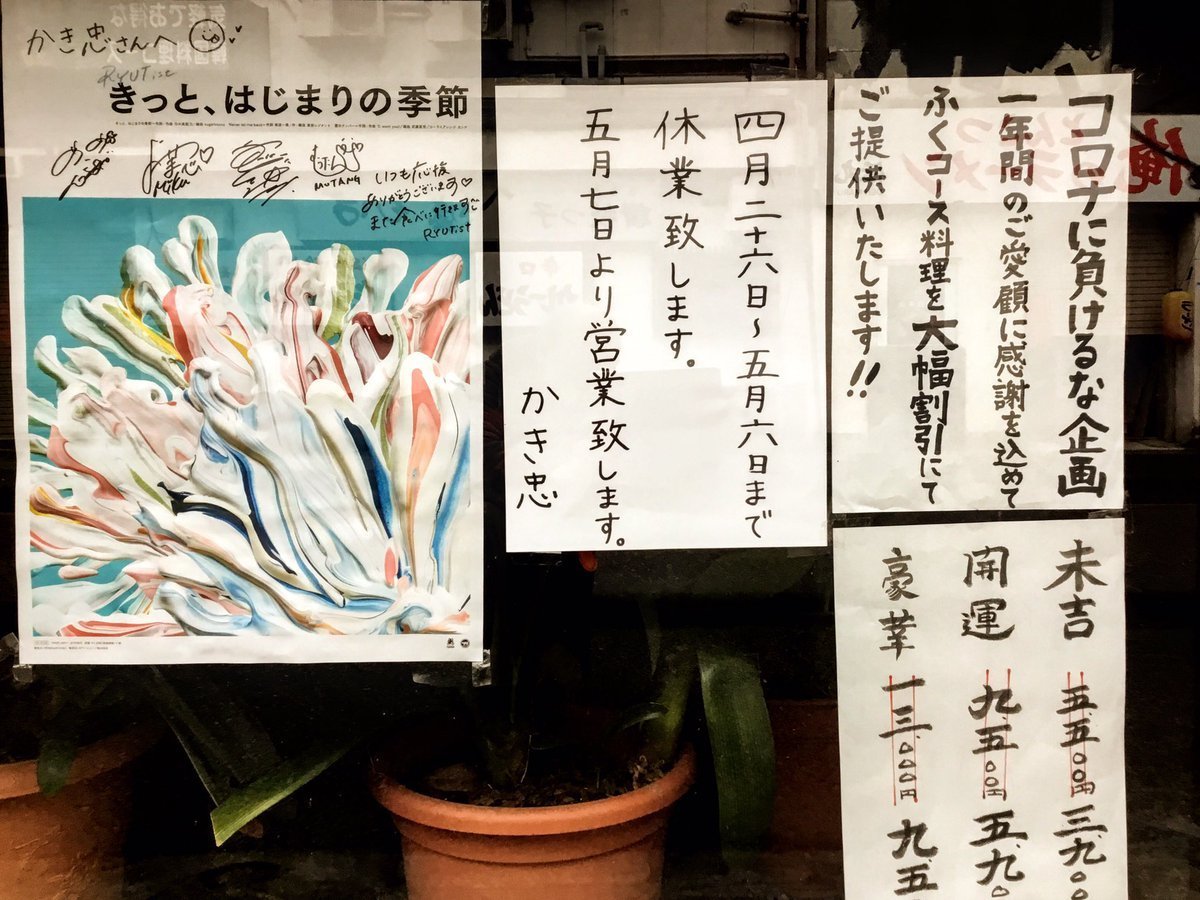 かき忠さんへ
RYUTist
きっと、はじまりの季節
Miku
MUTANG
いつも応援
ありがとうございます
また食べに行きます
RYUTist
四月二十六日〜五月六日まで
休業致します。
五月七日より営業致します。
かき忠
コロナに負けるな企画
一年間のご愛顧に感謝を込めて
ふくコース料理を大幅割引にて
ご提供いたします!!
末吉 五、五〇〇円 三、九〇
開運 九、五〇〇円 五、九〇
豪華 一三、〇〇〇円 九、五
俺
ラーメン